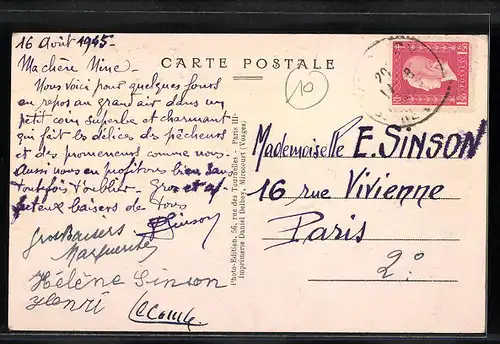 16 Août 1945-
CARTE POSTALE
10
Ma chère Nine-
Nous voici pour quelques jours
au repos au grand air dans un
petit coin superbe et charmant
qui fait les délices des pêcheurs
et des promeneurs comme nous-
Aussi nous en profitons bien sans
toutefois t'oublier- Gros et
baisers de tous
Sinson
Gros Baisers
Marguerite
Hélène Sinson
Henri
Photo-Edition, 56, rue des Tournelles - Paris III-
Imprimerie Daniel Delboy, Mirecourt (Vosges)
Mademoiselle E. SINSON
16 rue Vivienne
Paris
2º